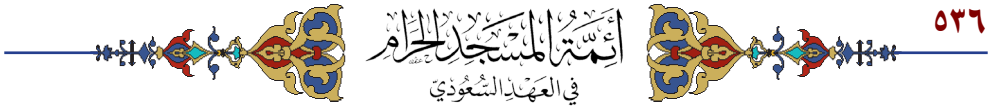 ٥٣٦
أَئِمَّةُ المَسْجِدِ الحَرَامِ
فِي العَهْدِ السُّعُودِيّ